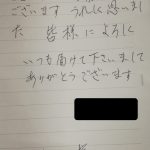 ございます うれしく思いまし
た 皆様によろしく
いつも届けて下さいまして
ありがとうございます